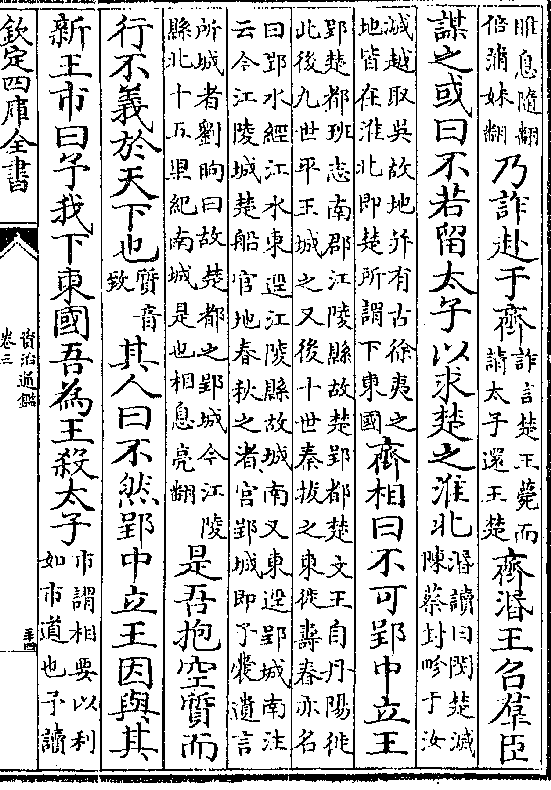 睢息隨翻
倍蒲妹翻
乃詐赴于齊
詐言楚王薨而
請太子還王楚
齊湣王召羣臣
謀之或曰不若留太子以求楚之淮北
湣讀曰閔楚滅
陳蔡封畛于汝
滅越取吳故地并有古徐夷之
地皆在淮北即楚所謂下東國
齊相曰不可郢中立王
郢楚都班志南郡江陵縣故楚郢都楚文王自丹陽徙
此後九世平王城之又後十世秦拔之東徙壽春亦名
曰郢水經江水東逕江陵縣故城南又東逕郢城南注
云今江陵城楚船官地春秋之渚宮郢城即子囊遺言
所城者劉昫曰故楚都之郢城今江陵
縣北十五里紀南城是也相息亮翻
是吾抱空質而
行不義於天下也
質音
致
其人曰不然郢中立王因與其
新王市曰予我下東國吾為王殺太子
市謂相要以利
如市道也予讀
欽定四庫全書
資治通鑑
卷三